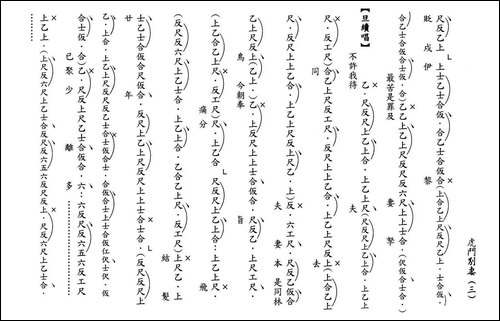 虎門別妻（三）
尺反乙上 上士乙士合仮合．乙士合士合仮合(上合乙上尺反尺乙上．士合仮．
眨 戍 伊 黎
合乙士合仮合士仮．合)乙乙上乙上尺反尺反六尺上上士合．(仉仮合士合．
最苦是罪及 妻 孥
【旦續唱】
乙．尺反尺上乙上合．上乙上尺(尺反尺上乙上合．上乙上
不許我得 夫
尺．反工尺)合乙上尺反工尺．尺反上乙上合．上乙上尺反上(上合乙上
同 去
尺．反上上乙上合．上乙上尺反上尺乙．上)反．六工尺．尺反乙仮合
夫 妻 本 是同林
乙上尺反上(乙上．)乙．上反尺上上乙上合．尺反乙．上尺工尺．
鳥 今朝奉 旨
(上乙合乙上尺．反工尺)尺．上乙合 尺反尺上乙上合．上乙上尺
痛分 飛
(反尺反六尺上乙士合．上乙上合．乙合乙上尺．反工尺)上尺乙．上
結 髮
士乙士合仮合尺仮合．反尺上乙上尺反尺上上士合士合．(反尺反尺上
廿 年
乙．上合．上乙上尺反尺反乙士合仮
合士仮．合)乙．尺反上尺乙士合仮合．六：六反尺反六五六反工尺
已聚 少 離 多
上乙上．(上尺反六尺上乙士合反尺反六五六反尺反上．尺反六尺上乙士合